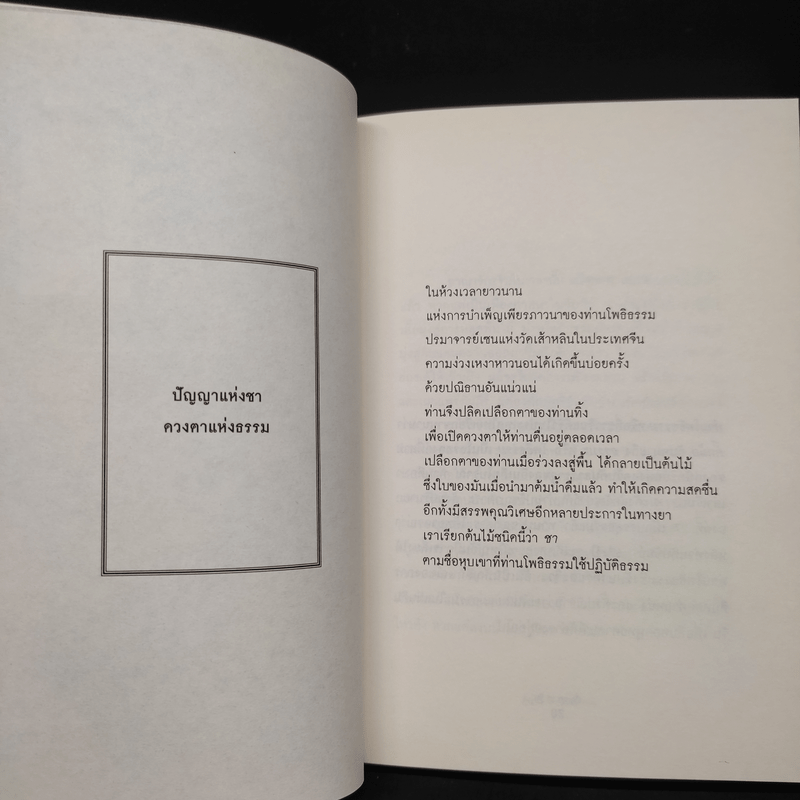 ปัญญาแห่งชา
ดวงตาแห่งธรรม
ในห้วงเวลายาวนาน
แห่งการบำเพ็ญเพียรภาวนาของท่านโพธิธรรม
ปรมาจารย์เซนแห่งวัดเส้าหลินในประเทศจีน
ความง่วงเหงาหาวนอนได้เกิดขึ้นบ่อยครั้ง
ด้วยปณิธานอันแน่วแน่
ท่านจึงปลิดเปลือกตาของท่านทิ้ง
เพื่อเปิดดวงตาให้ท่านตื่นอยู่ตลอดเวลา
เปลือกตาของท่านเมื่อร่วงลงสู่พื้น ได้กลายเป็นต้นไม้
ซึ่งใบของมันเมื่อนำมาต้มน้ำดื่มแล้ว ทำให้เกิดความสดชื่น
อีกทั้งมีสรรพคุณวิเศษอีกหลายประการในทางยา
เราเรียกต้นไม้ชนิดนี้ว่า ชา
ตามชื่อหุบเขาที่ท่านโพธิธรรมใช้ปฏิบัติธรรม